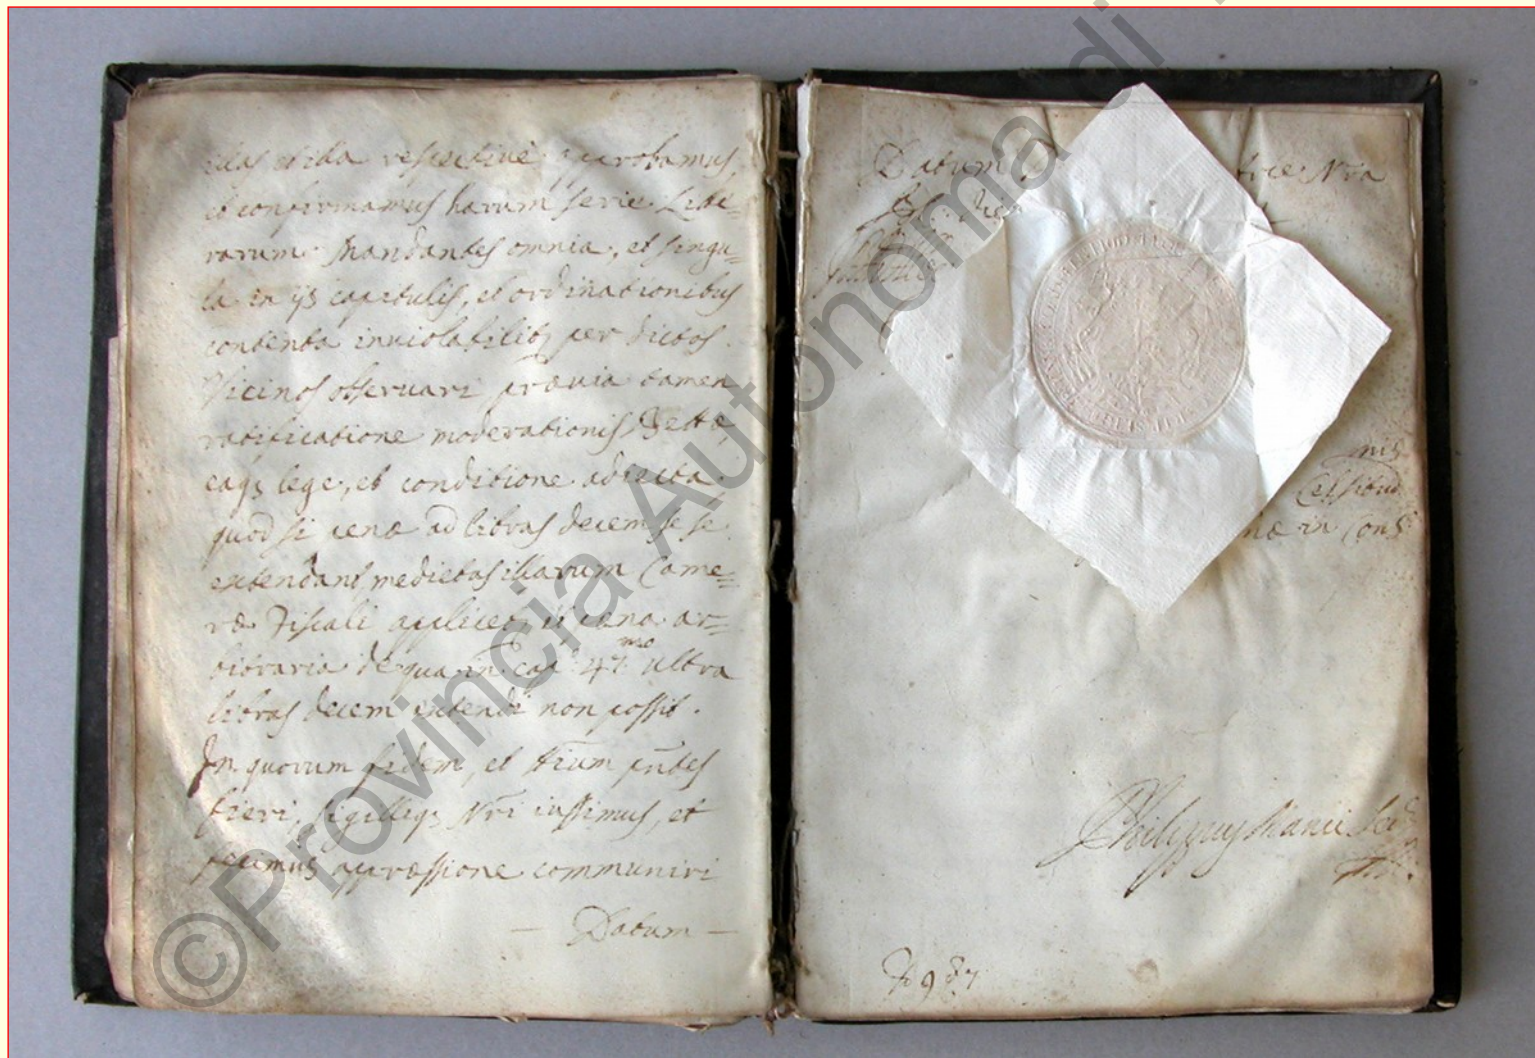 illas et illa respectivè approbamus,
et confirmamus harum serie Litte=
rarum. Mandantes omnia, et singu=
la in ijs capitulis, et ordinationibus
contenta inviolabilit3 per dictos
Vicinos observari prævia tamen
ratificatione moderationis
eaq3 lege, et conditione adiecta
quod si pena ad libras decem se se
extendant, medietas illarum Came=
ræ Fiscali applicet3, et pena ar=
bitraria de qua in cap. 47.mo ultra
libras decem extendi non possit.
In quorum fidem, et
fieri, sigilliq3 Nri iussimus, et
fecimus appræssione communiri
— Datum —
Datum
Nra
nis
in Cons
Philippus Manci
©Provincia Autonoma di